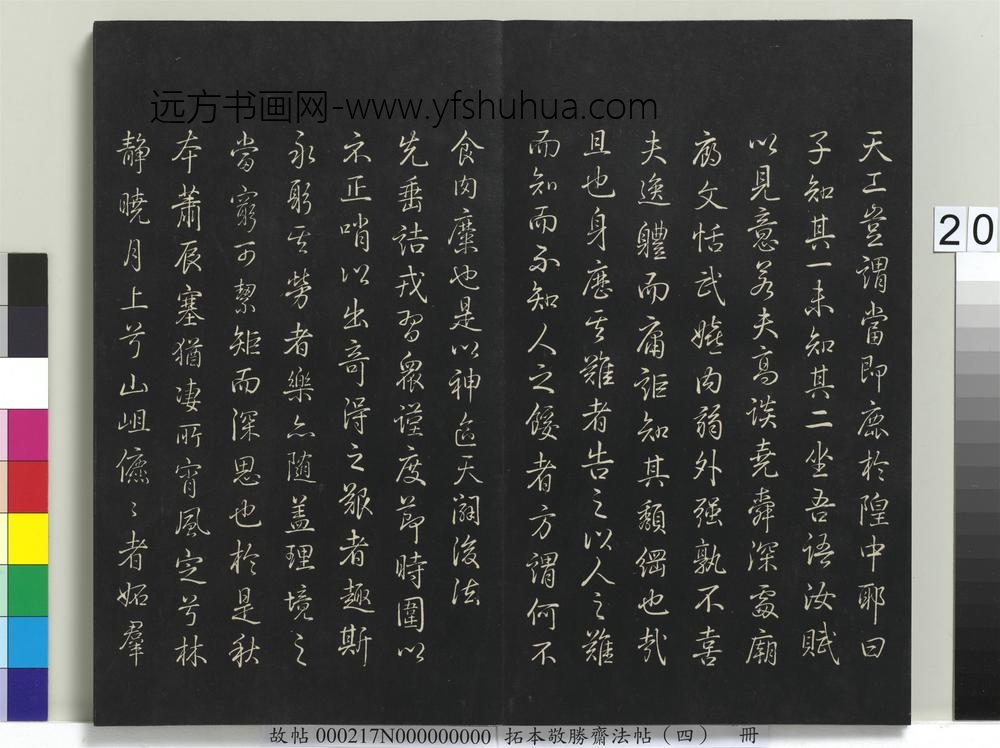 远方书画网-www.yfshuhua.com
天工豈謂當即鹿於隍中耶曰
子知其一未知其二坐吾語汝賦
以見意若夫高談堯舜深處廟
廊文恬武嬉内弱外强孰不喜
夫逸體而庸詎知其頽綱也哉
且也身歷其難者告之以人之難
而知而不知人之餒者方謂何不
食肉糜也是以神迄天潤後法
先垂詰戎習衆謹度節時圍以
不正哨以出奇得之艱者趣斯
永彰其勞者樂亦随蓋理境之
當窮可絜矩而深思也於是秋
本蕭辰塞猶凄所宵風定兮林
靜曉月上兮山岨儦々者始羣
20
故帖 000217N000000000 拓本敬勝齋法帖(四) 冊